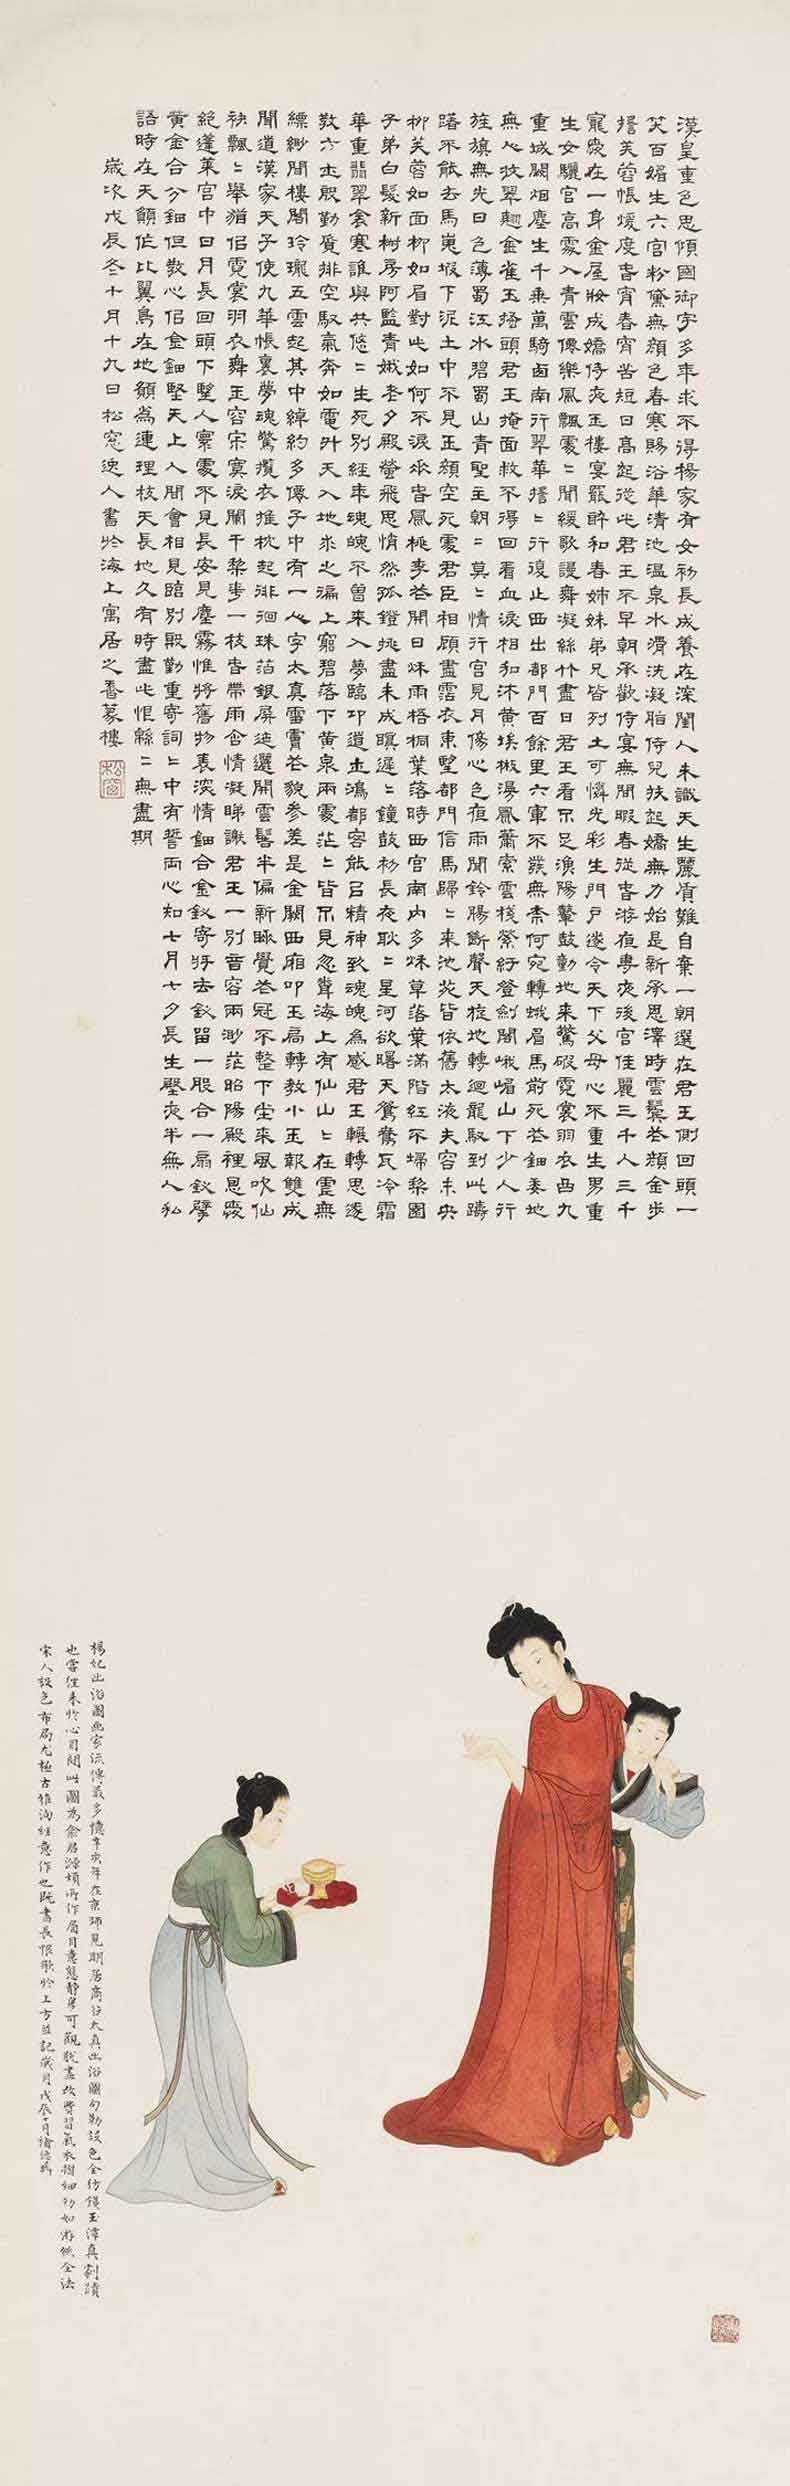 漢皇重色思傾國御宇多年求不得楊家有女初長成養在深閨人未識天生麗質難自棄一朝選在君王側回頭一
笑百媚生六宮粉黛無顔色春寒賜浴華清池温泉水滑洗凝脂侍兒扶起嬌無力始是新承恩澤時雲鬢花顔金步
搖芙蓉帳煖度春宵春宵苦短日高起從此君王不早朝承歡侍宴無閒暇春從春游夜專夜後宮佳麗三千人三千
寵愛在一身金屋妝成嬌侍夜玉樓宴罷醉和春姊妹弟兄皆列土可憐光彩生門戶遂令天下父母心不重生男重
生女驪宮高處入青雲僊樂風飄處〻聞緩歌謾舞凝絲竹盡日君王看不足漁陽鼙鼓動地來驚破霓裳羽衣曲九
重城闕烟塵生千乘萬騎西南行翠華搖〻行復止西出都門百餘里六軍不發無柰何宛轉蛾眉馬前死花鈿委地
無人收翠翹金雀玉搔頭君王掩面救不得回看血淚相和流黄埃散漫風蕭索雲棧縈紆登劍閣峨嵋山下少人行
旌旗無光日色薄蜀江水碧蜀山青聖主朝〻莫〻情行宮見月傷心色夜雨聞鈴腸斷聲天旋地轉迴龍馭到此躊
躇不能去馬嵬坡下泥土中不見玉顔空死處君臣相顧盡霑衣東望都門信馬歸〻來池苑皆依舊太液夫容未央
柳芙蓉如面柳如眉對此如何不淚垂春風桃李花開日秋雨梧桐葉落時西宮南内多秋草落葉滿階紅不掃梨園
子弟白髮新椒房阿監青娥老夕殿螢飛思悄然孤鐙挑盡未成眠遲〻鐘鼓初長夜耿〻星河欲曙天鴛鴦瓦冷霜
華重翡翠衾寒誰與共悠〻生死别經年魂魄不曾來入夢臨卭道士鴻都客能召精神致魂魄爲感君王輾轉思遂
教方士殷勤覓排空馭氣奔如電升天入地求之遍上窮碧落下黄泉兩處茫〻皆不見忽聞海上有仙山〻在虛無
縹緲間樓閣玲瓏五雲起其中綽約多僊子中有一人字太真雪膚花貌參差是金闕西廂叩玉扃轉教小玉報雙成
聞道漢家天子使九華帳裏夢魂驚攬衣推枕起徘徊珠箔銀屏迤邐開雲鬢半偏新睡覺花冠不整下堂來風吹仙
袂飄〻舉猶似霓裳羽衣舞玉容寂寞淚闌干梨花一枝春帶雨含情凝睇謝君王一别音容兩渺茫昭陽殿裡恩愛
絶蓬萊宮中日月長回頭下望人寰處不見長安見塵霧惟將舊物表深情鈿合金釵寄將去釵留一股合一扇釵擘
黄金合分鈿但教心似金鈿堅天上人間會相見臨别殷勤重寄詞〻中有誓兩心知七月七夕長生殿夜半無人私
語時在天願作比翼鳥在地願爲連理枝天長地久有時盡此恨緜〻無盡期
歲次戊辰冬十月十九日松窓逸人書於海上寓居之香篆樓
松窗
楊妃出浴圖画家流傳最多憶辛亥年在京師見明居商谷太真出浴圖勾勒設色全仿錢玉潭真劇蹟
也嘗往來於心目間此圖為余居源煩所作眉目意態靜穆可觀脱盡故習氣衣褶細勁如游絲全法
宋人設色布局尤極古雅洵經意作也既書長恨歌於上方並記歲月戊辰十月